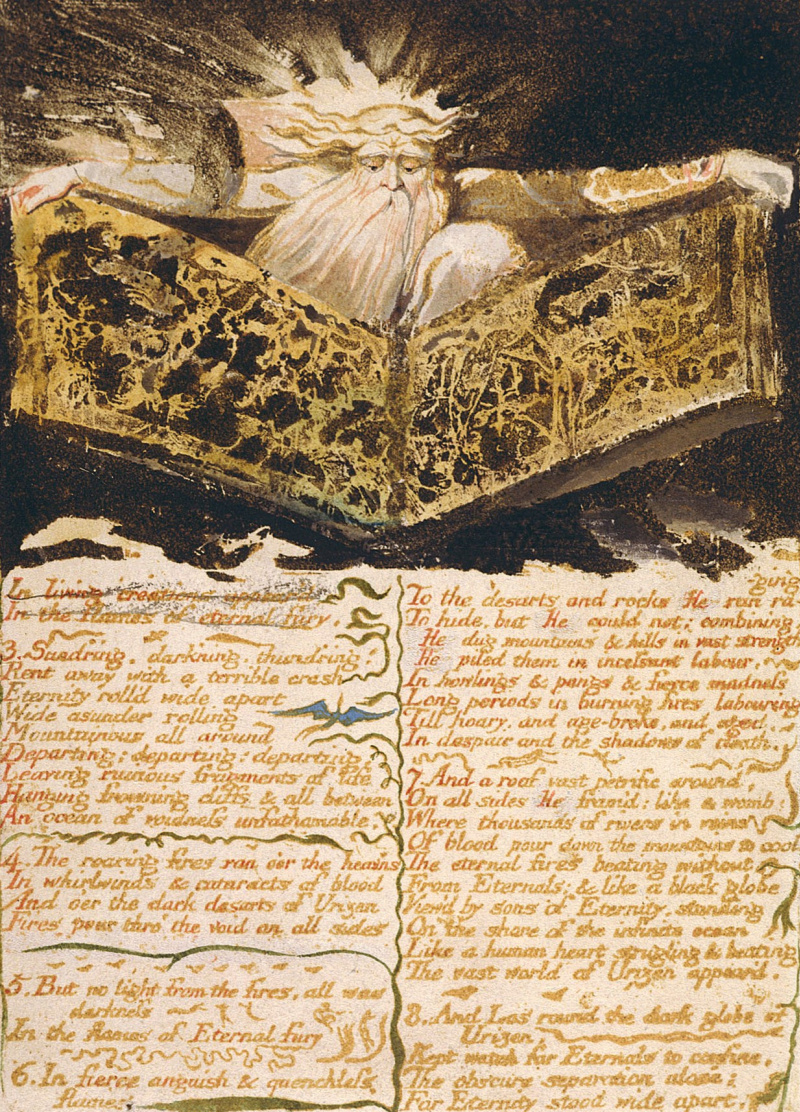 In living creations appear'd
In the flames of eternal fury.
3. Sundring, darkning, thundring!
Rent away with a terrible crash
Eternity roll'd wide apart
Wide asunder rolling
Mountainous all around
Departing; departing; departing:
Leaving ruinous fragments of life
Hanging frowning cliffs & all between
An ocean of voidness unfathomable.
4. The roaring fires ran o'er the heav'ns
In whirlwinds & cataracts of blood
And o'er the dark desarts of Urizen
Fires pour thro' the void on all sides
5. But no light from the fires. all was
darkness
In the flames of Eternal fury
6. In fierce anguish & quenchless
flames
ging
To the desarts and rocks He ran ra
To hide, but He could not: combining
He dug mountains & hills in vast strength
He piled them in incessant labour,
In howlings & pangs & fierce madness
Long periods in burning fires labouring
Till hoary, and age-broke, and aged,
In despair and the shadows of death.
7. And a roof vast petrific around,
On all sides He fram'd: like a womb;
Where thousands of rivers in veins
Of blood pour down the mountains to cool
The eternal fires beating without
From Eternals; & like a black globe
View'd by sons of Eternity, standing
On the shore of the infinite ocean
Like a human heart strugling & beating
The vast world of Urizen appear'd.
8. And Los round the dark globe of
Urizen,
Kept watch for Eternals to confine,
The obscure separation alone;
For Eternity stood wide apart,